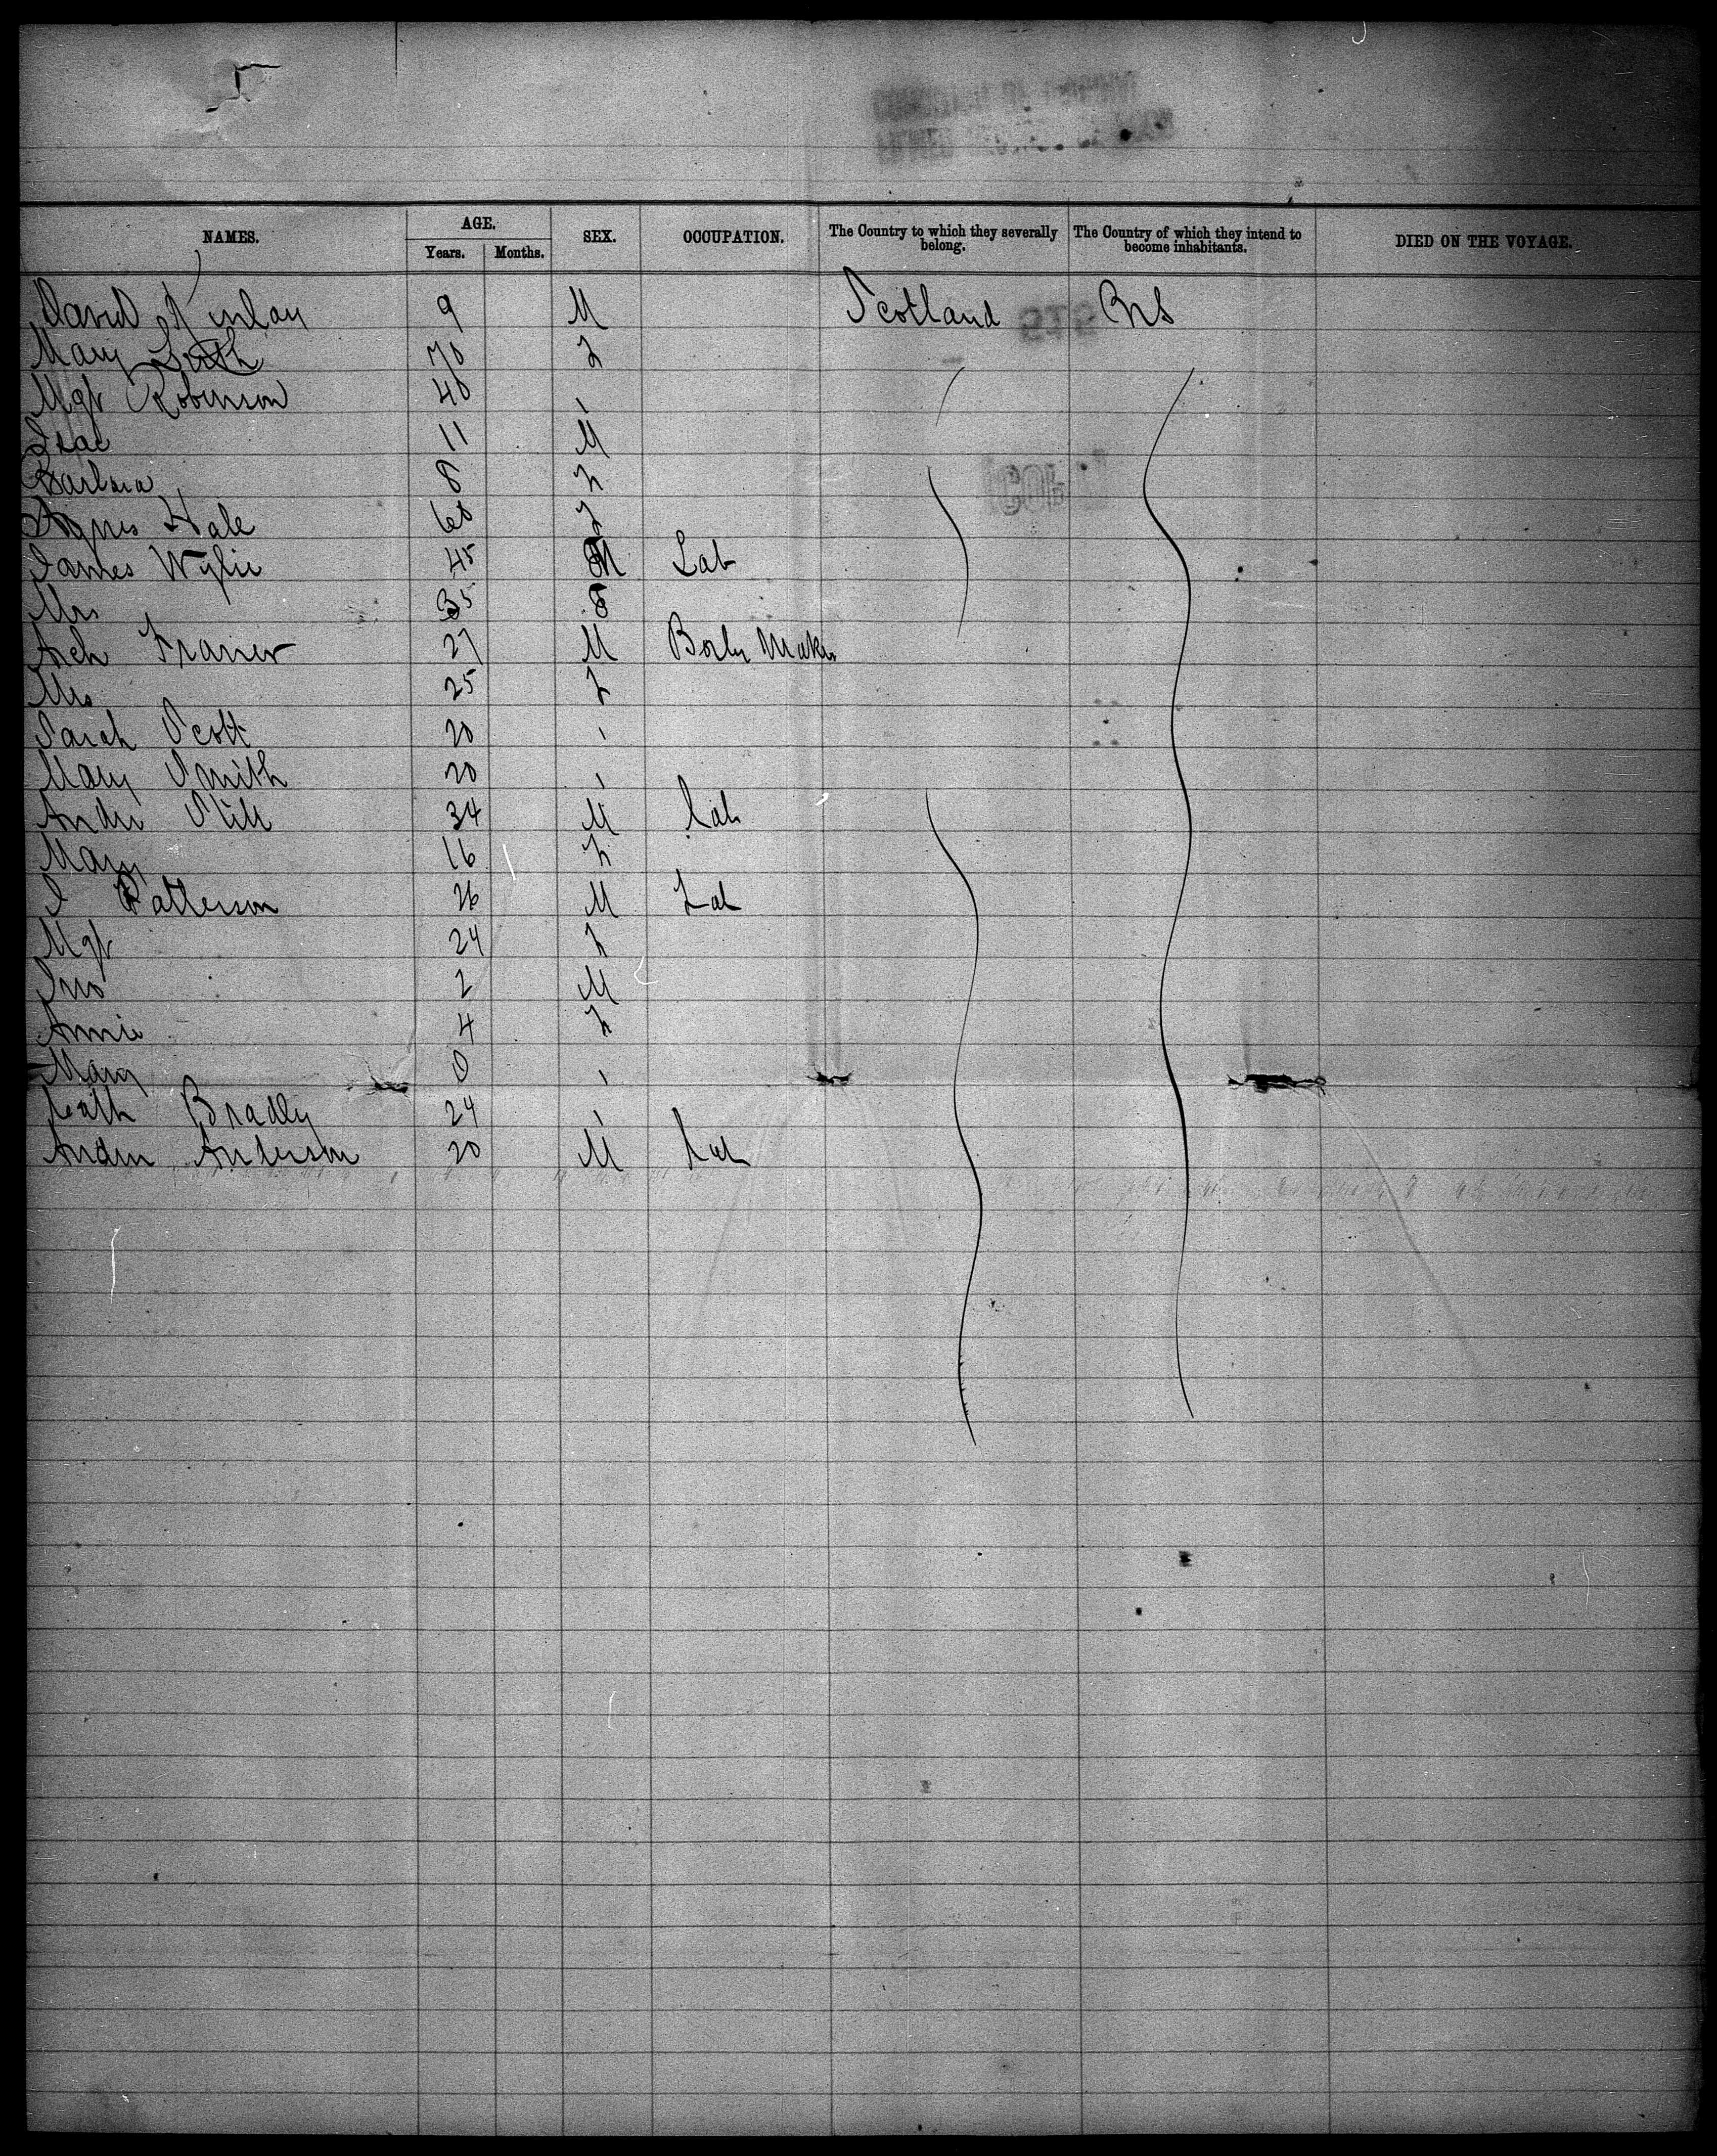 NAMES. AGE. SEX. OCCUPATION. The Country to which they severally belong. The Country of which they intend to become inhabitants. DIED ON THE VOYAGE.
Years. Months.
David 9 M Scotland
Mary 70 F
Mgt Robinson 40 "
Isac 11 M
Barbara 8 F
Agnes Hale 60 F
James Wylie 45 M Lab
Mrs 35 F
Arch Fraser 27 M Boiler Maker
Mrs 25 F
Sarah Scott 20 "
Mary Smith 20 "
Andw 34 M Lab
Mary 16 F
J Patterson 26 M Lab
Mgt 24 F
Jno 2 M
Annie 4 F
Mary 0 "
Cath Bradly 24 "
Andrew Anderson 20 M Lab